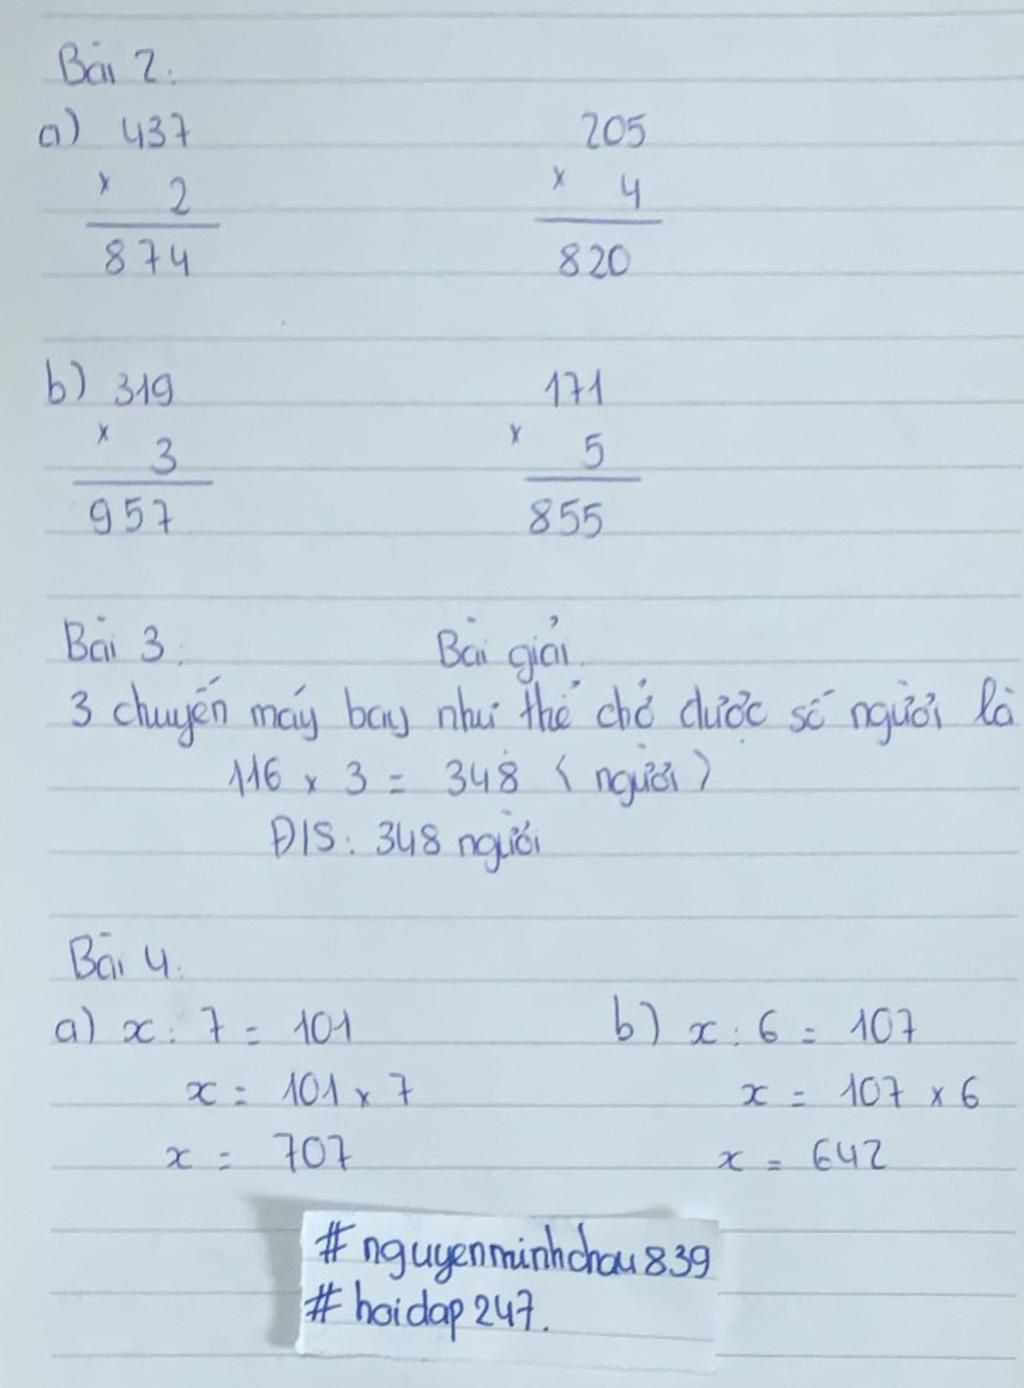 Bài 2:
a) 437 205
x 2 x 4
874 820
b) 319 171
x 3 x 5
957 855
Bài 3: Bài giải.
3 chuyến máy bay như thế chở được số người là
116 x 3 = 348 (người)
Đ/S: 348 người
Bài 4.
a) x : 7 = 101 b) x : 6 = 107
x = 101 x 7 x = 107 x 6
x = 707 x = 642
#nguyenminhchau839
#hoidap247.